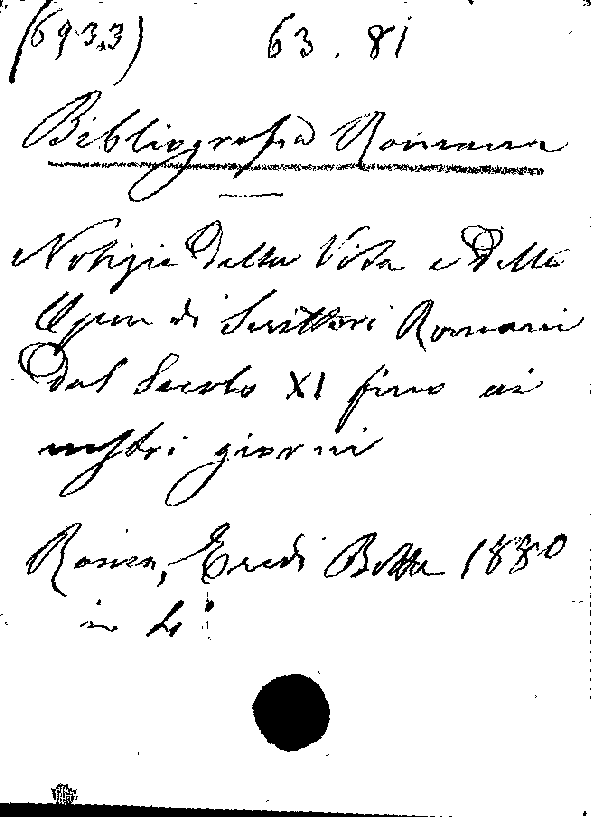 (693,3) 63.81
Bibliografia Romana
Notizie della Vita e delle
Opere di Scrittori Romani
dal Secolo XI fino ai
nostri giorni
Roma, Eredi Botta 1880
in 4°